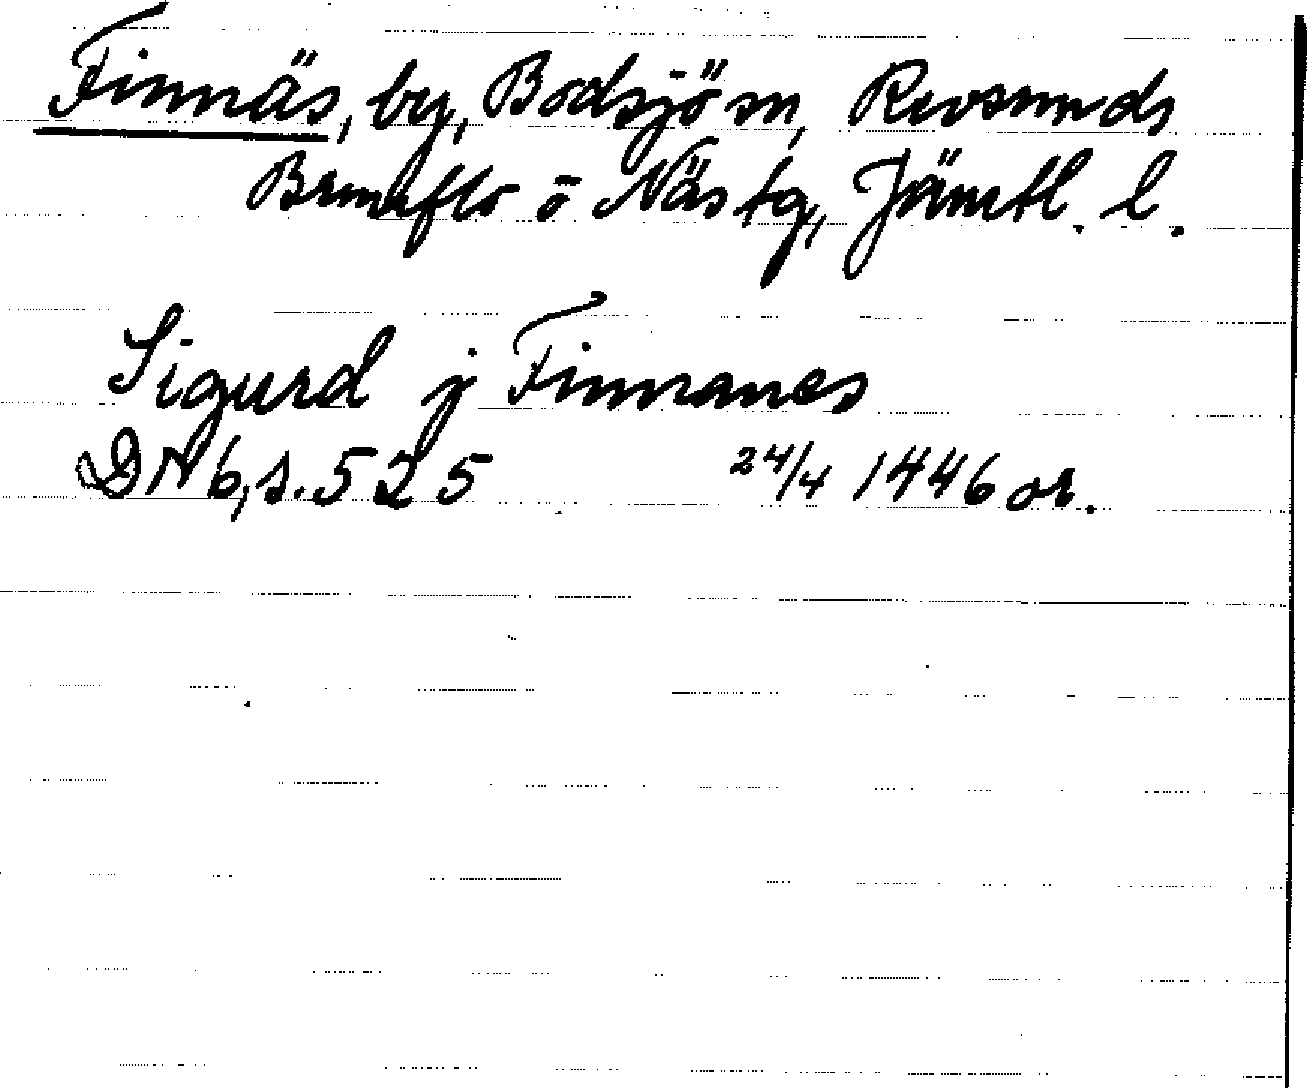 Finnäs, by, Bodsjö sn, Revsunds
Brunflo o Näs tg, Jämtl. l.
Sigurd j Finnanes
DN 6, s. 525 24/4 1446 or.